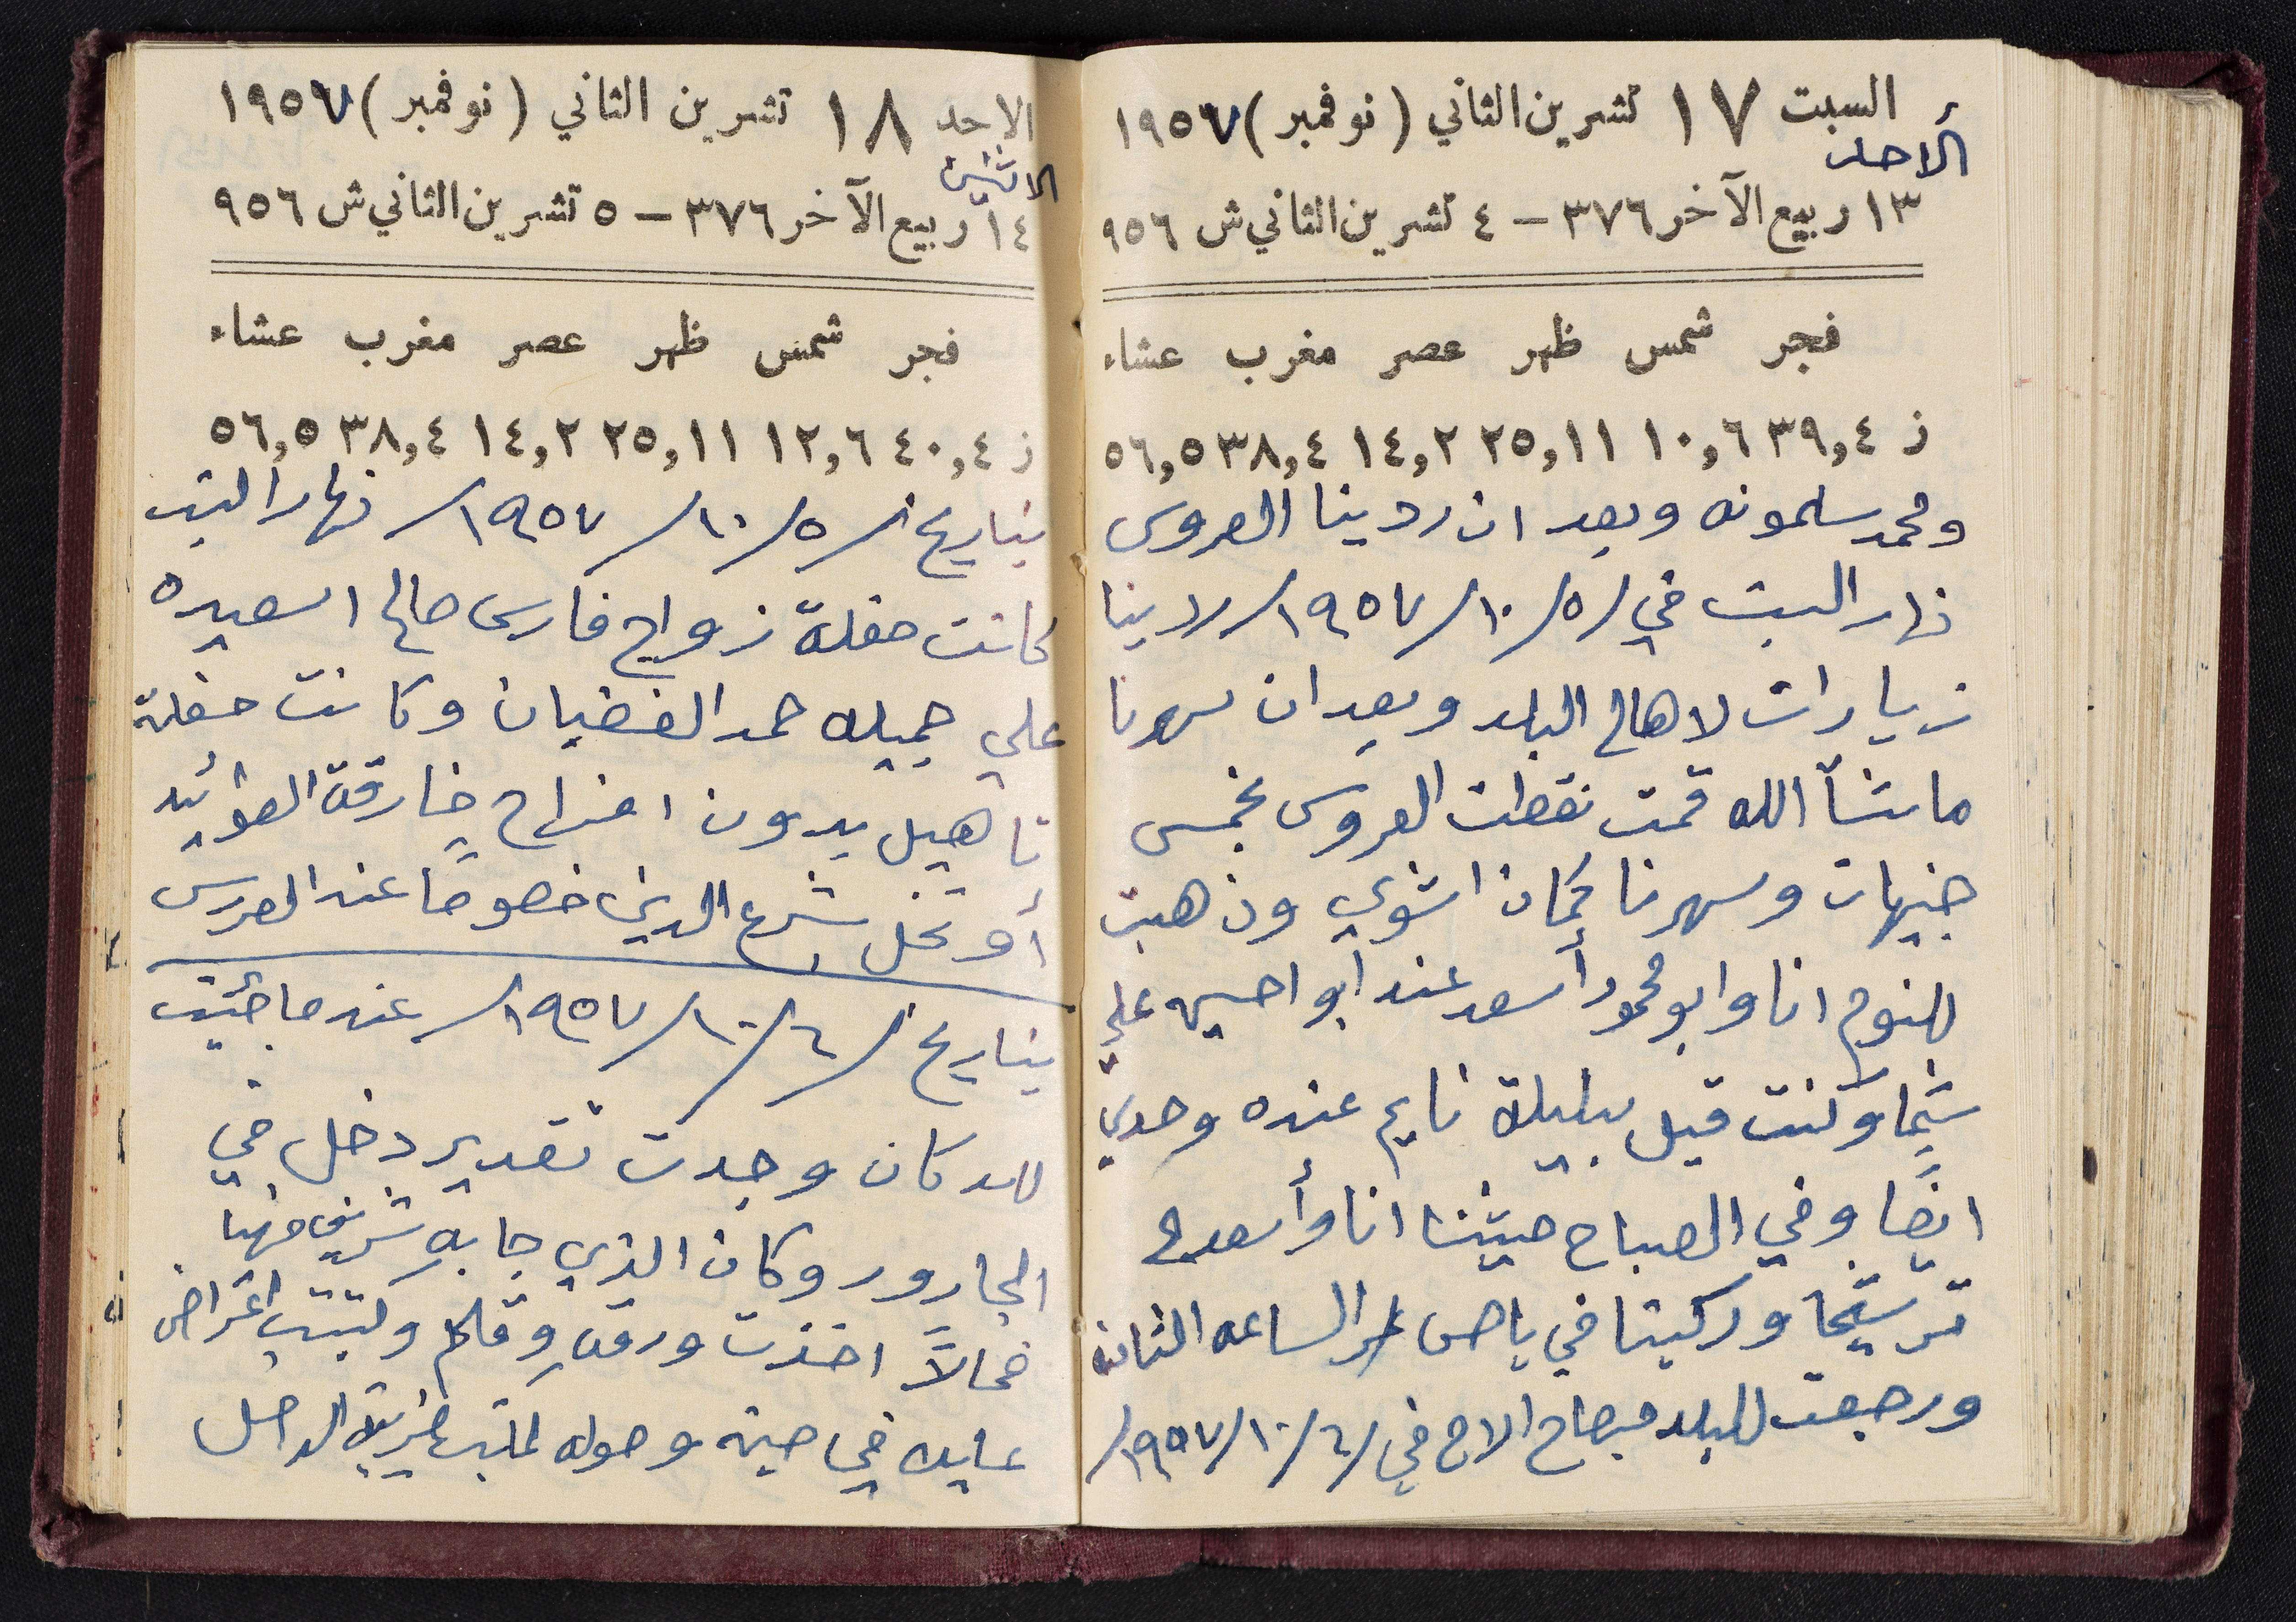 السبت ١٧ تشرين الثاني (نوفمبر) ١٩٥٧
الأحد
١٣ ربيع الآخر ٣٧٦ – ٤ تشرين الثاني ش ٩٥٦
فجر شمس ظهر عصر مغرب عشاء
ز ٣٩,٤ ١٠,٦ ٢٥,١١ ١٤,٢ ٣٨,٤ ٥٦,٥
ومحمد سلمونه وبعد ان ردينا العروس
نهار السبت في /٥/١٠/١٩٥٧/ ردينا
زيارات لاهالي البلد وبعد ان سهرنا
ما شأ الله قمت نقطت العروس بخمس
جنيهات وسهرنا كمان اشوي وذهبت
للنوم انا وابو محمود أسعد عند أبو احسين علي
شيخا وكنت قبل بليلة نايم عنده وحدي
ايضًا وفي الصباح جيئنا انا وأسعد ل
ترشيحا وركبنا في باص الساعه الثامنه
ورجعت للبلد صباح الاحد في /٦/١٠/١٩٥٧/
الاحد ١٨ تشرين الثاني (نوفمبر) ١٩٥٧
الاثنين
١٤ ربيع الآخر ٣٧٦ – ٥ تشرين الثاني ش ٩٥٦
فجر شمس ظهر عصر مغرب عشاء
ز ٤٠,٤ ١٢,٦ ٢٥,١١ ١٤,٢ ٣٨,٤ ٥٦,٥
بتاريخ /٥/١٠/١٩٥٧/ نهار السبت
كانت حفلة زواج فارس صالح اسعيده
علي جميله حمد الغضبان وكانت حفلة
تاهيل بدون افراح خارقة العوائد
أو تخل بشرع الدين خصوصًا عند العروس
بتاريخ /٦/١٠/١٩٥٧/ عندما جئيت
للدكان وجدت تقدير دخل في
الجارور وكان الذي جابه شريف مهنا
فحالاً اخذت ورقه وقلم وكتبت اعتراض
عليه في حينه وحوله لمكتب ضريبة الدخل